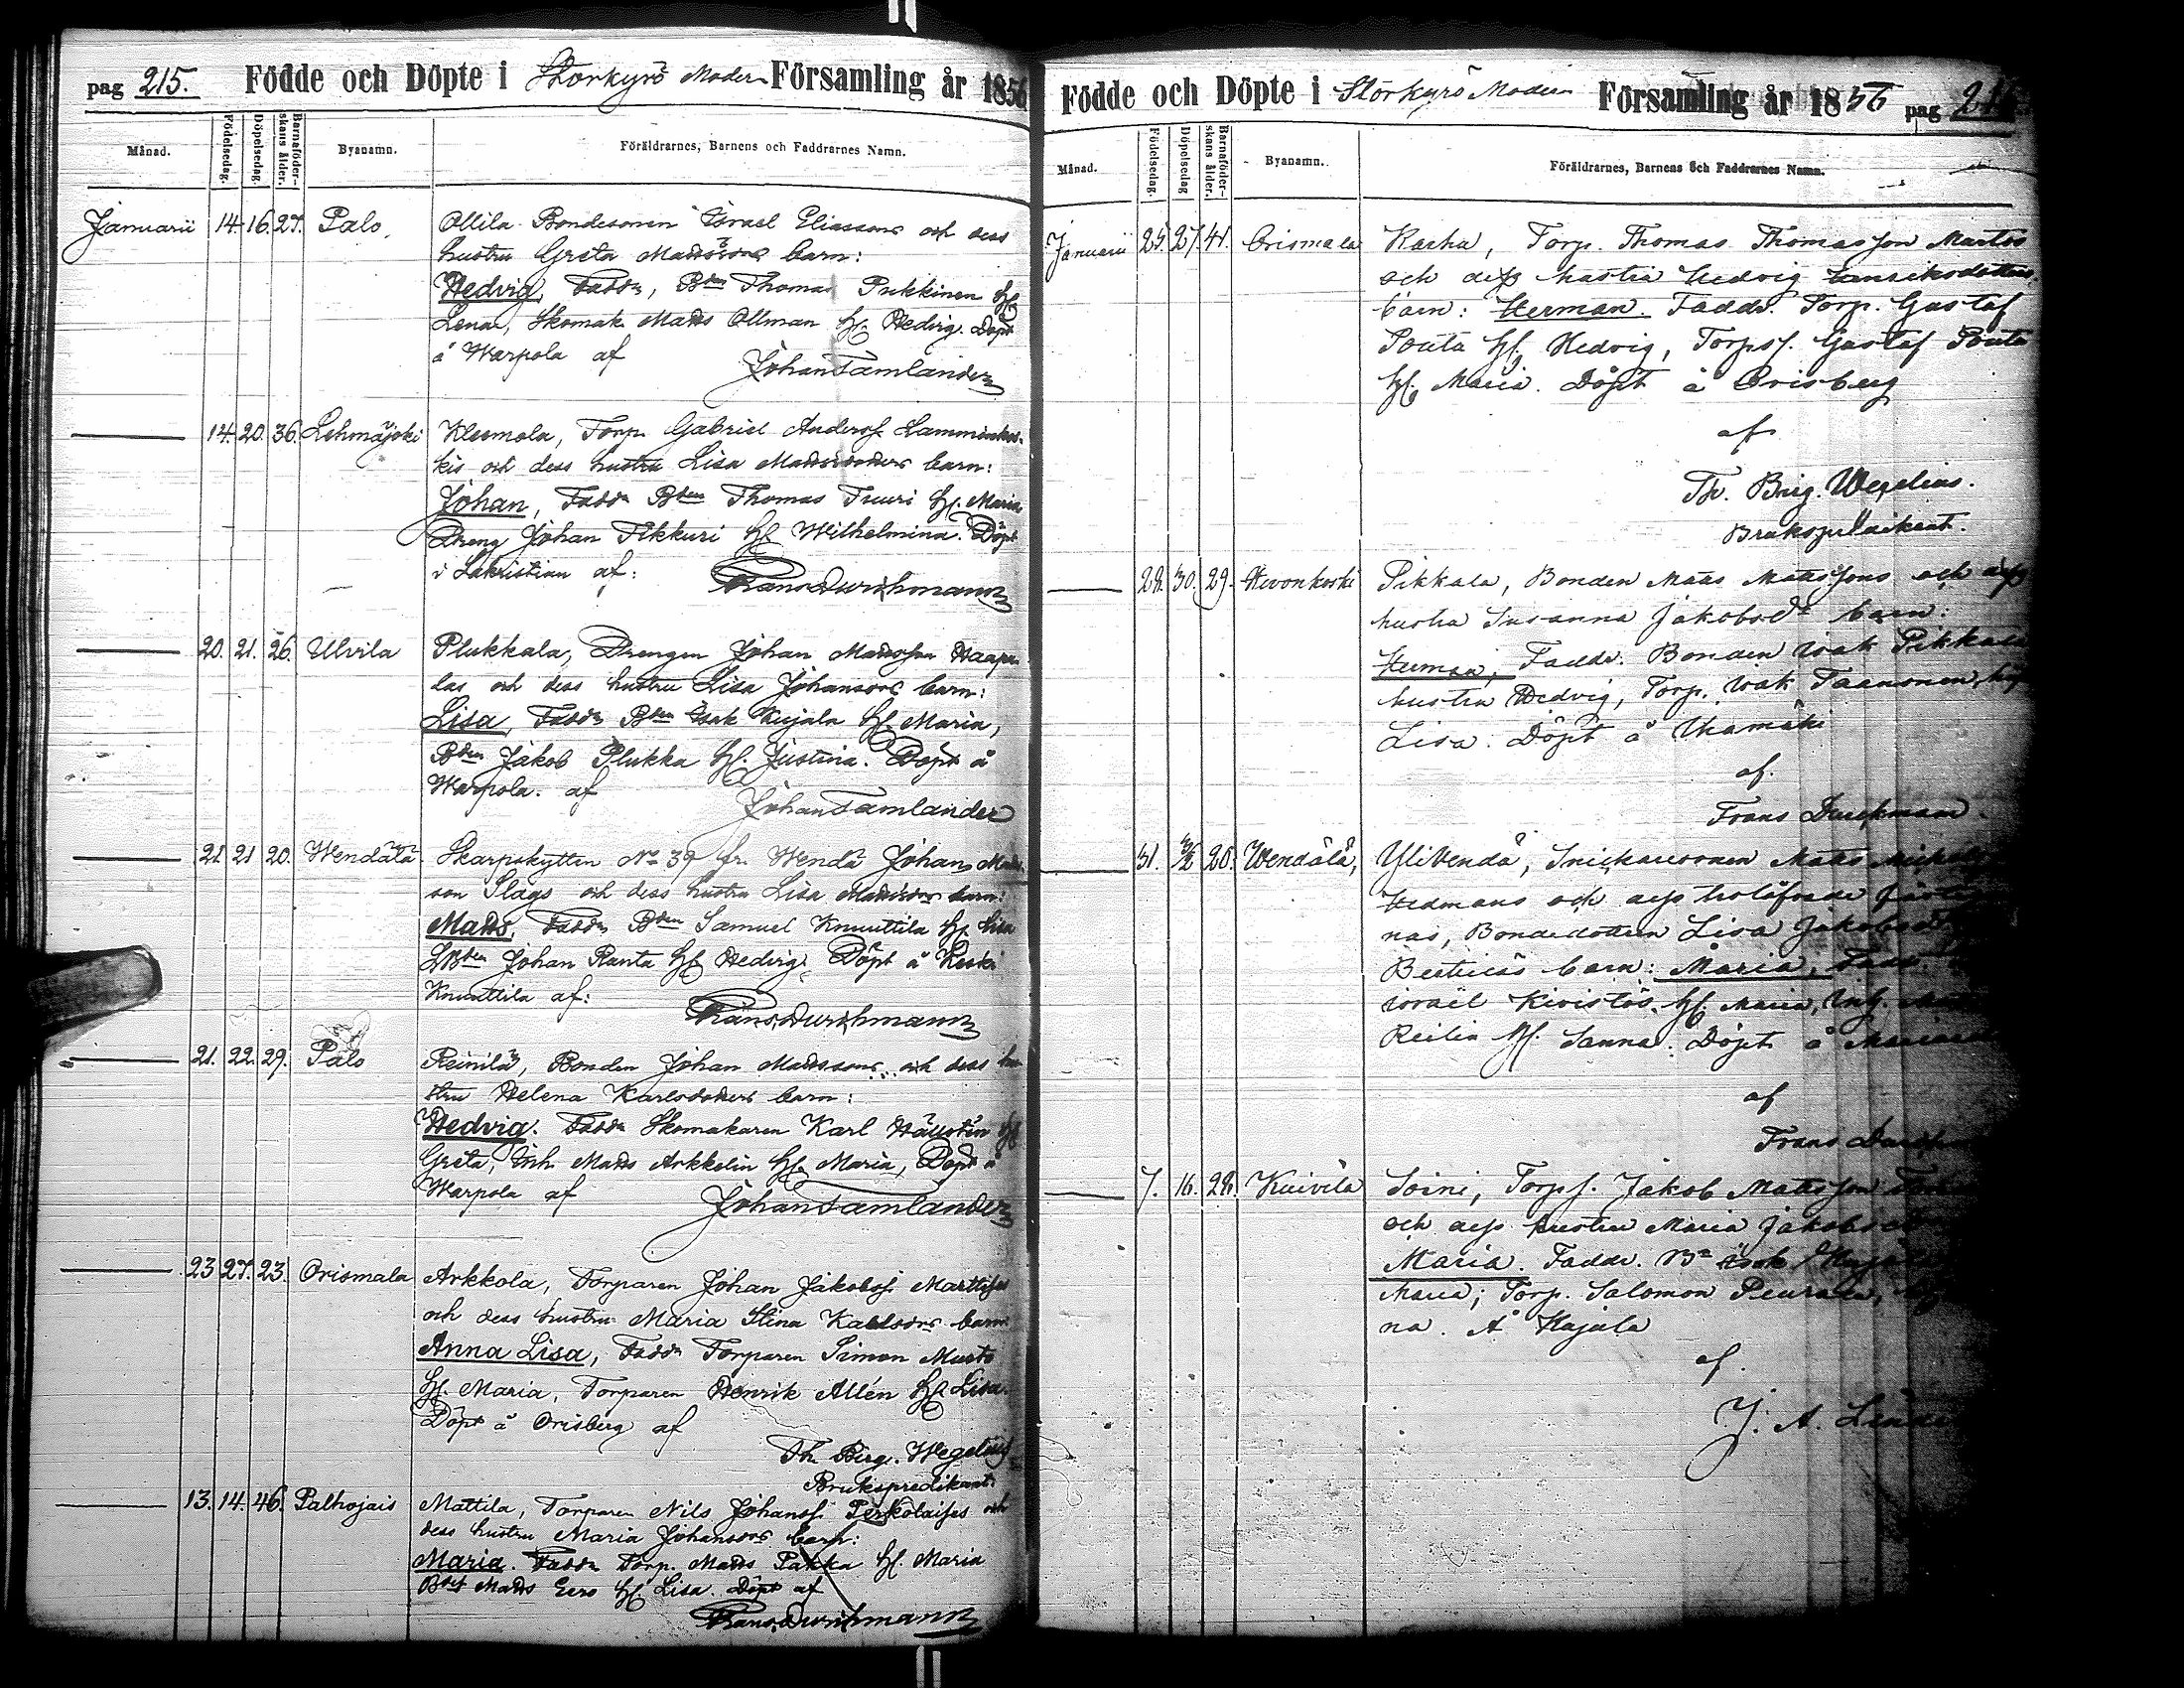 pag 215. Födde och Döpte i Storkyrö Moder Församling år 1856
Månad. Födelsedag. Döpelsedag. Barnaföderskans ålder. Byanamn. Föräldrarnes, Barnens och Faddrarnes Namn.
Januarii 14. 16. 27. Palo. Ollila Bondesonen Israel Eliassons och dess
hustru Greta Mattsdrs barn:
Hedvig, Faddr, Bden Thomas Pukkinen Hf
Lena, Skomak Matts Ollman Hf. Hedvig. Döpt
å Warpola af
Johan Tamlander
14. 20. 36. Lehmäjoki Klemola, Torp. Gabriel Anderss. Lamminkos-
kis och dess hustru Lisa Mattsdotters barn:
Johan, Faddr Bden Thomas Tuuri Hf. Maria
Dreng Johan Tikkuri Hf Wilhelmina. Döpt
i Sakristian af:
Frans Durchman
20. 21. 26. Ulvila Plukkala, Drengen Johan Mattsson Haapa-
las och dess hustru Lisa Johansdrs barn:
Lisa, Faddr Bden Isak Kujala Hf. Maria,
Bden Jakob Plukka Hf. Justina. Döpt å
Warpola. af
Johan Tamlander
21 21 20. Wendälä Skarpskytten No 39 fr. Wendä Johan Matts-
son Slags och dess hustru Lisa Mattsdrs barn:
Matts, Faddr Bden Samuel Knuuttila Hf Lisa
Bden Johan Ranta Hf Hedvig. Döpt å Keski
Knuuttila af:
Frans Durchman
21. 22. 29. Palo Reinilä, Bonden Johan Mattssons och dess hu-
stru Helena Karlsdotters barn:
Hedvig. Faddr Skomakaren Karl Hällstén Hf
Greta, Inh. Matts Arkkelin Hf. Maria, Döpt å
Warpola af
Johan Tamlander
23 27. 23. Orismala Arkkola, Torparen Johan Jakobss.
och dess hustru Maria Stina Karlsdrs barn:
Anna Lisa, Faddr Torparen Simon Musto
Hf. Maria, Torparen Henrik Allén Hf Lisa.
Döpt å Orisberg af
Th. Birg. Wegelius
Brukspredikant.
13. 14. 46. Palhojais Mattila, Torparen Nils Johanss. och
dess hustru Maria Johansdrs barn:
Maria. Faddr Torp. Matts Pakka Hf. Maria
Matts Eero Hf. Lisa. Döpt af
Frans Durchman
Födde och Döpte i Storkyrö Modern Församling år 1856 pag
Månad. Födelsedag. Döpelsedag Barnaföderskans ålder. Byanamn. Föräldrarnes, Barnens och Faddrarnes Namn.
Januarii 25. 27. 41. Orismala Kasha, Torp. Thomas Thomasson
och dess hustru Hedvig Henriksdotters
barn: Herman. Faddr. Torp. Gustaf
Pouta Hf. Hedvig, Torps. Gustaf Pouta
Hf. Maria. Döpt å Orisberg
af
Th. Birg. Wegelius.
Brukspredikant.
28. 30. 29. Hevonkoski Pikkala, Bonden Matts Mattssons och dess
hustru Susanna Jakobsdr barn:
Herman, Faddr. Bonden Isak Pikkala
hustru Hedvig, Torp. Isak
Lisa. Döpt å
af.
Frans Durchman.
31. 3/2 20. Wendälä, Yli Vendä, Snickaresonen Matts
Hedmans och dess trolofvade
nas, Bondedottern Lisa
barn: Maria, Faddr.
Israel Kivistös Hf. Maria, Inh.
Hf. Sanna. Döpt å
af
Frans
7. 16. 28. Kuivila Soini, Torps. Jakob Mattsson
och dess hustru Maria
Maria. Faddr. Bn Isak
Maria; Torp. Salomon
na. Å Kujala
af.
J. A.